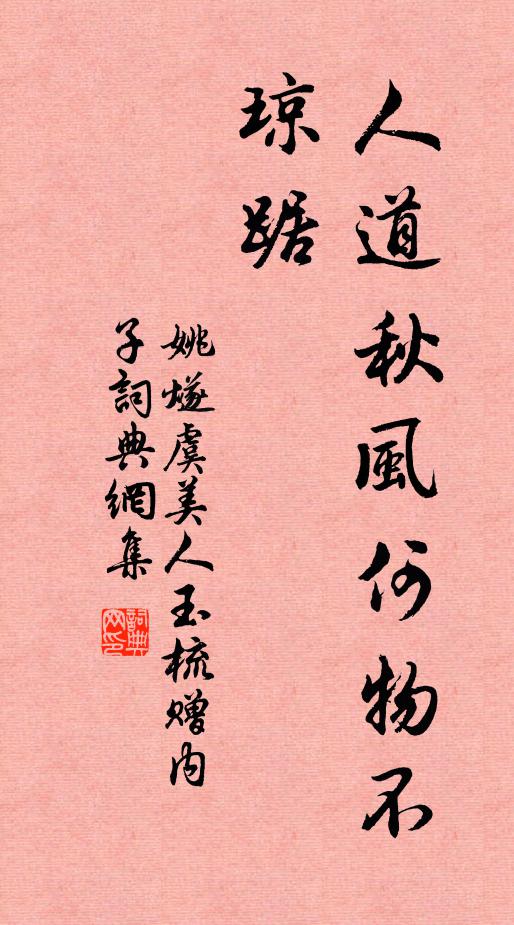 人道秋風何物不
琼踞
姚燧虞美人玉梳赠内
子詞典網集
詞典網印